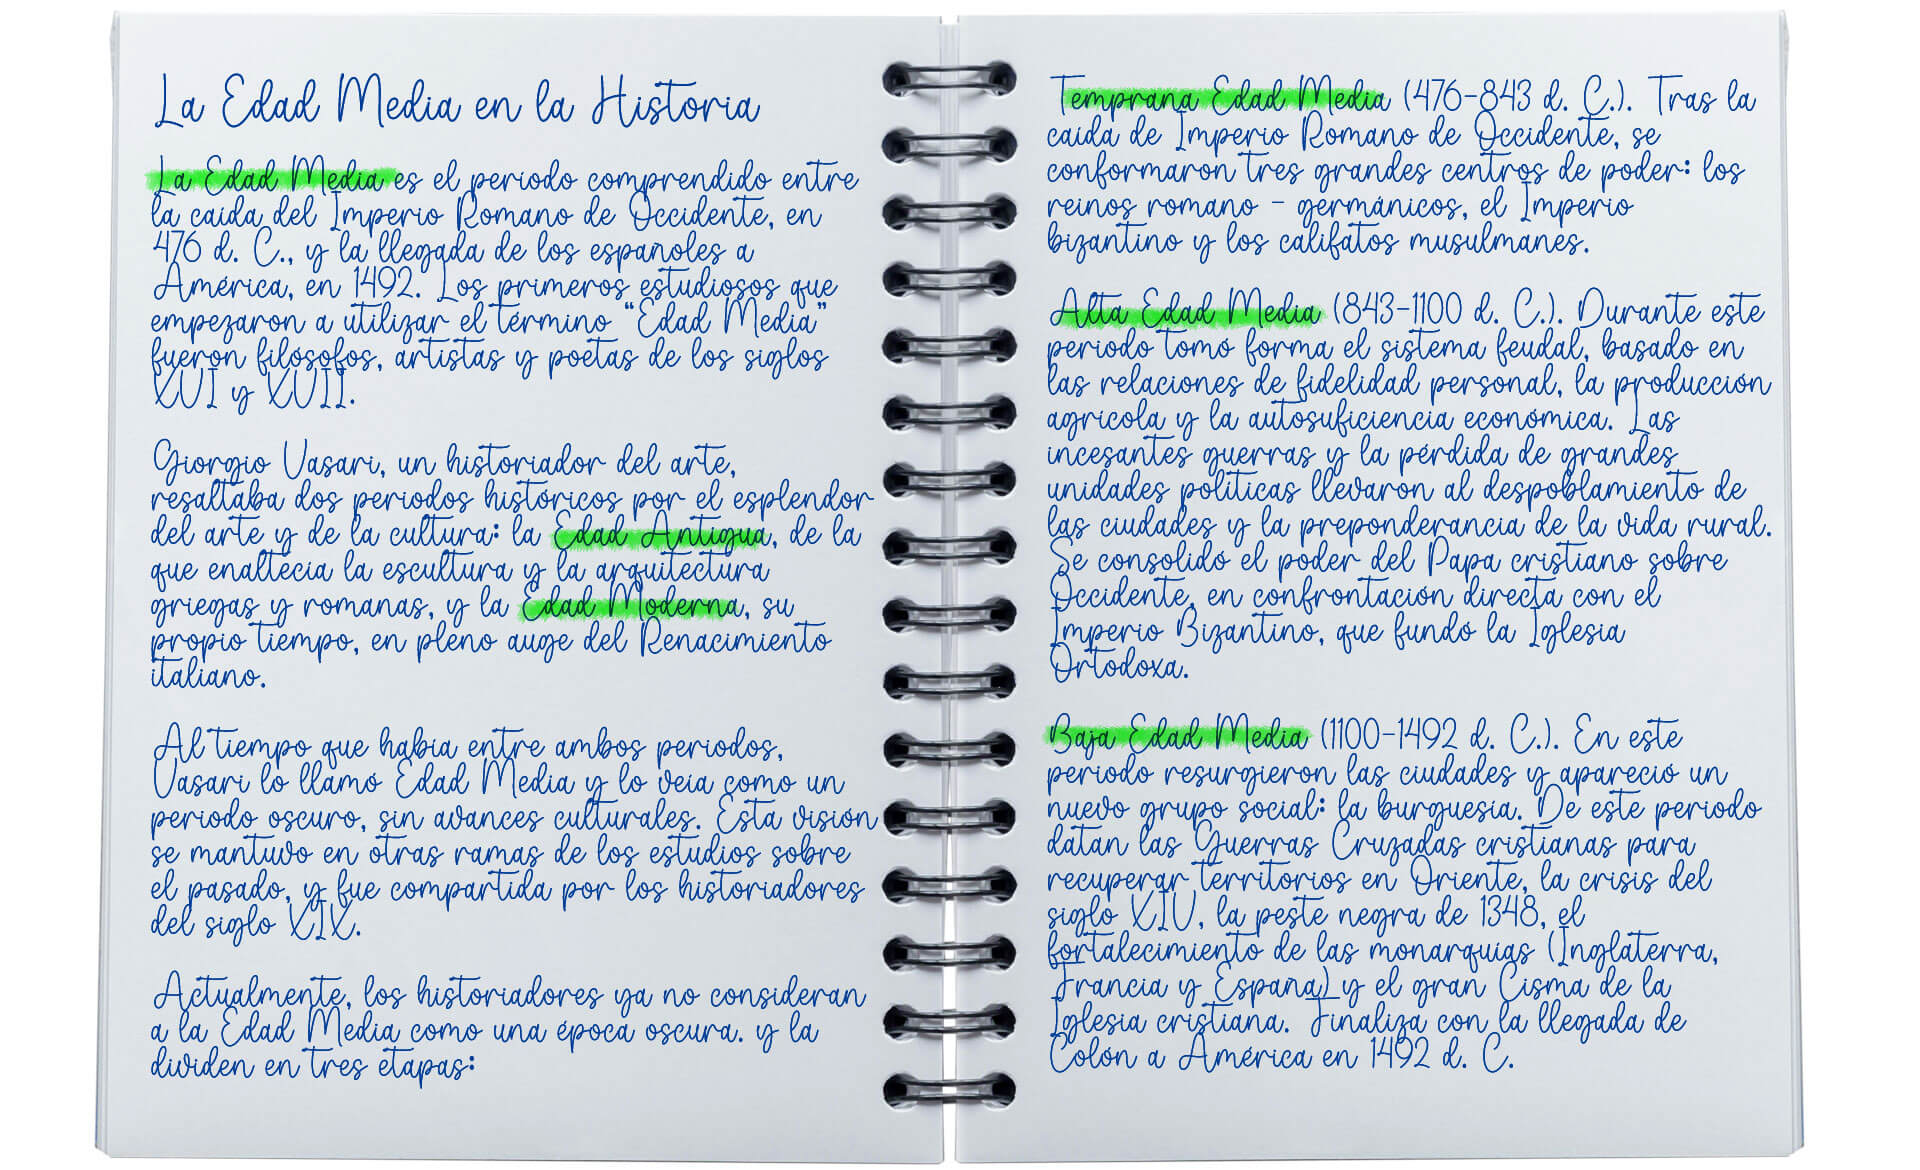 La Edad Media en la Historia
La Edad Media es el período comprendido entre
la caída del Imperio Romano de Occidente, en
476 d. C., y la llegada de los españoles a
América, en 1492. Los primeros estudiosos que
empezaron a utilizar el término “Edad Media”
fueron filósofos, artistas y poetas de los siglos
XVI y XVII.
Giorgio Vasari, un historiador del arte,
resaltaba dos períodos históricos por el esplendor
del arte y de la cultura: la Edad Antigua, de la
que enaltecía la escultura y la arquitectura
griegas y romanas, y la Edad Moderna, su
propio tiempo, en pleno auge del Renacimiento
italiano.
Al tiempo que había entre ambos períodos,
Vasari lo llamó Edad Media y lo veía como un
período oscuro, sin avances culturales. Esta visión
se mantuvo en otras ramas de los estudios sobre
el pasado, y fue compartida por los historiadores
del siglo XIX.
Actualmente, los historiadores ya no consideran
a la Edad Media como una época oscura. y la
dividen en tres etapas:
Temprana Edad Media (476-843 d. C.). Tras la
caída de Imperio Romano de Occidente, se
conformaron tres grandes centros de poder: los
reinos romano - germánicos, el Imperio
bizantino y los califatos musulmanes.
Alta Edad Media (843-1100 d. C.). Durante este
período tomó forma el sistema feudal, basado en
las relaciones de fidelidad personal, la producción
agrícola y la autosuficiencia económica. Las
incesantes guerras y la pérdida de grandes
unidades políticas llevaron al despoblamiento de
las ciudades y la preponderancia de la vida rural.
Se consolidó el poder del Papa cristiano sobre
Occidente, en confrontación directa con el
Imperio Bizantino, que fundó la Iglesia
Ortodoxa.
Baja Edad Media (1100-1492 d. C.). En este
período resurgieron las ciudades y apareció un
nuevo grupo social: la burguesía. De este período
datan las Guerras Cruzadas cristianas para
recuperar territorios en Oriente, la crisis del
siglo XIV, la peste negra de 1348, el
fortalecimiento de las monarquías (Inglaterra,
Francia y España) y el gran Cisma de la
Iglesia cristiana. Finaliza con la llegada de
Colón a América en 1492 d. C.